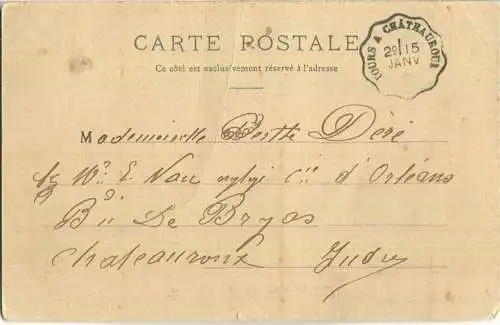 CARTE POSTALE
Ce côté est exclusivement réservé à l'adresse
TOURS A CHATEAUROUX
29 15
JANV
Mademoiselle Berthe Déré
Mr. E. Nau Cie d'Orléans
Bd De Bryas
Chateauroux Indre